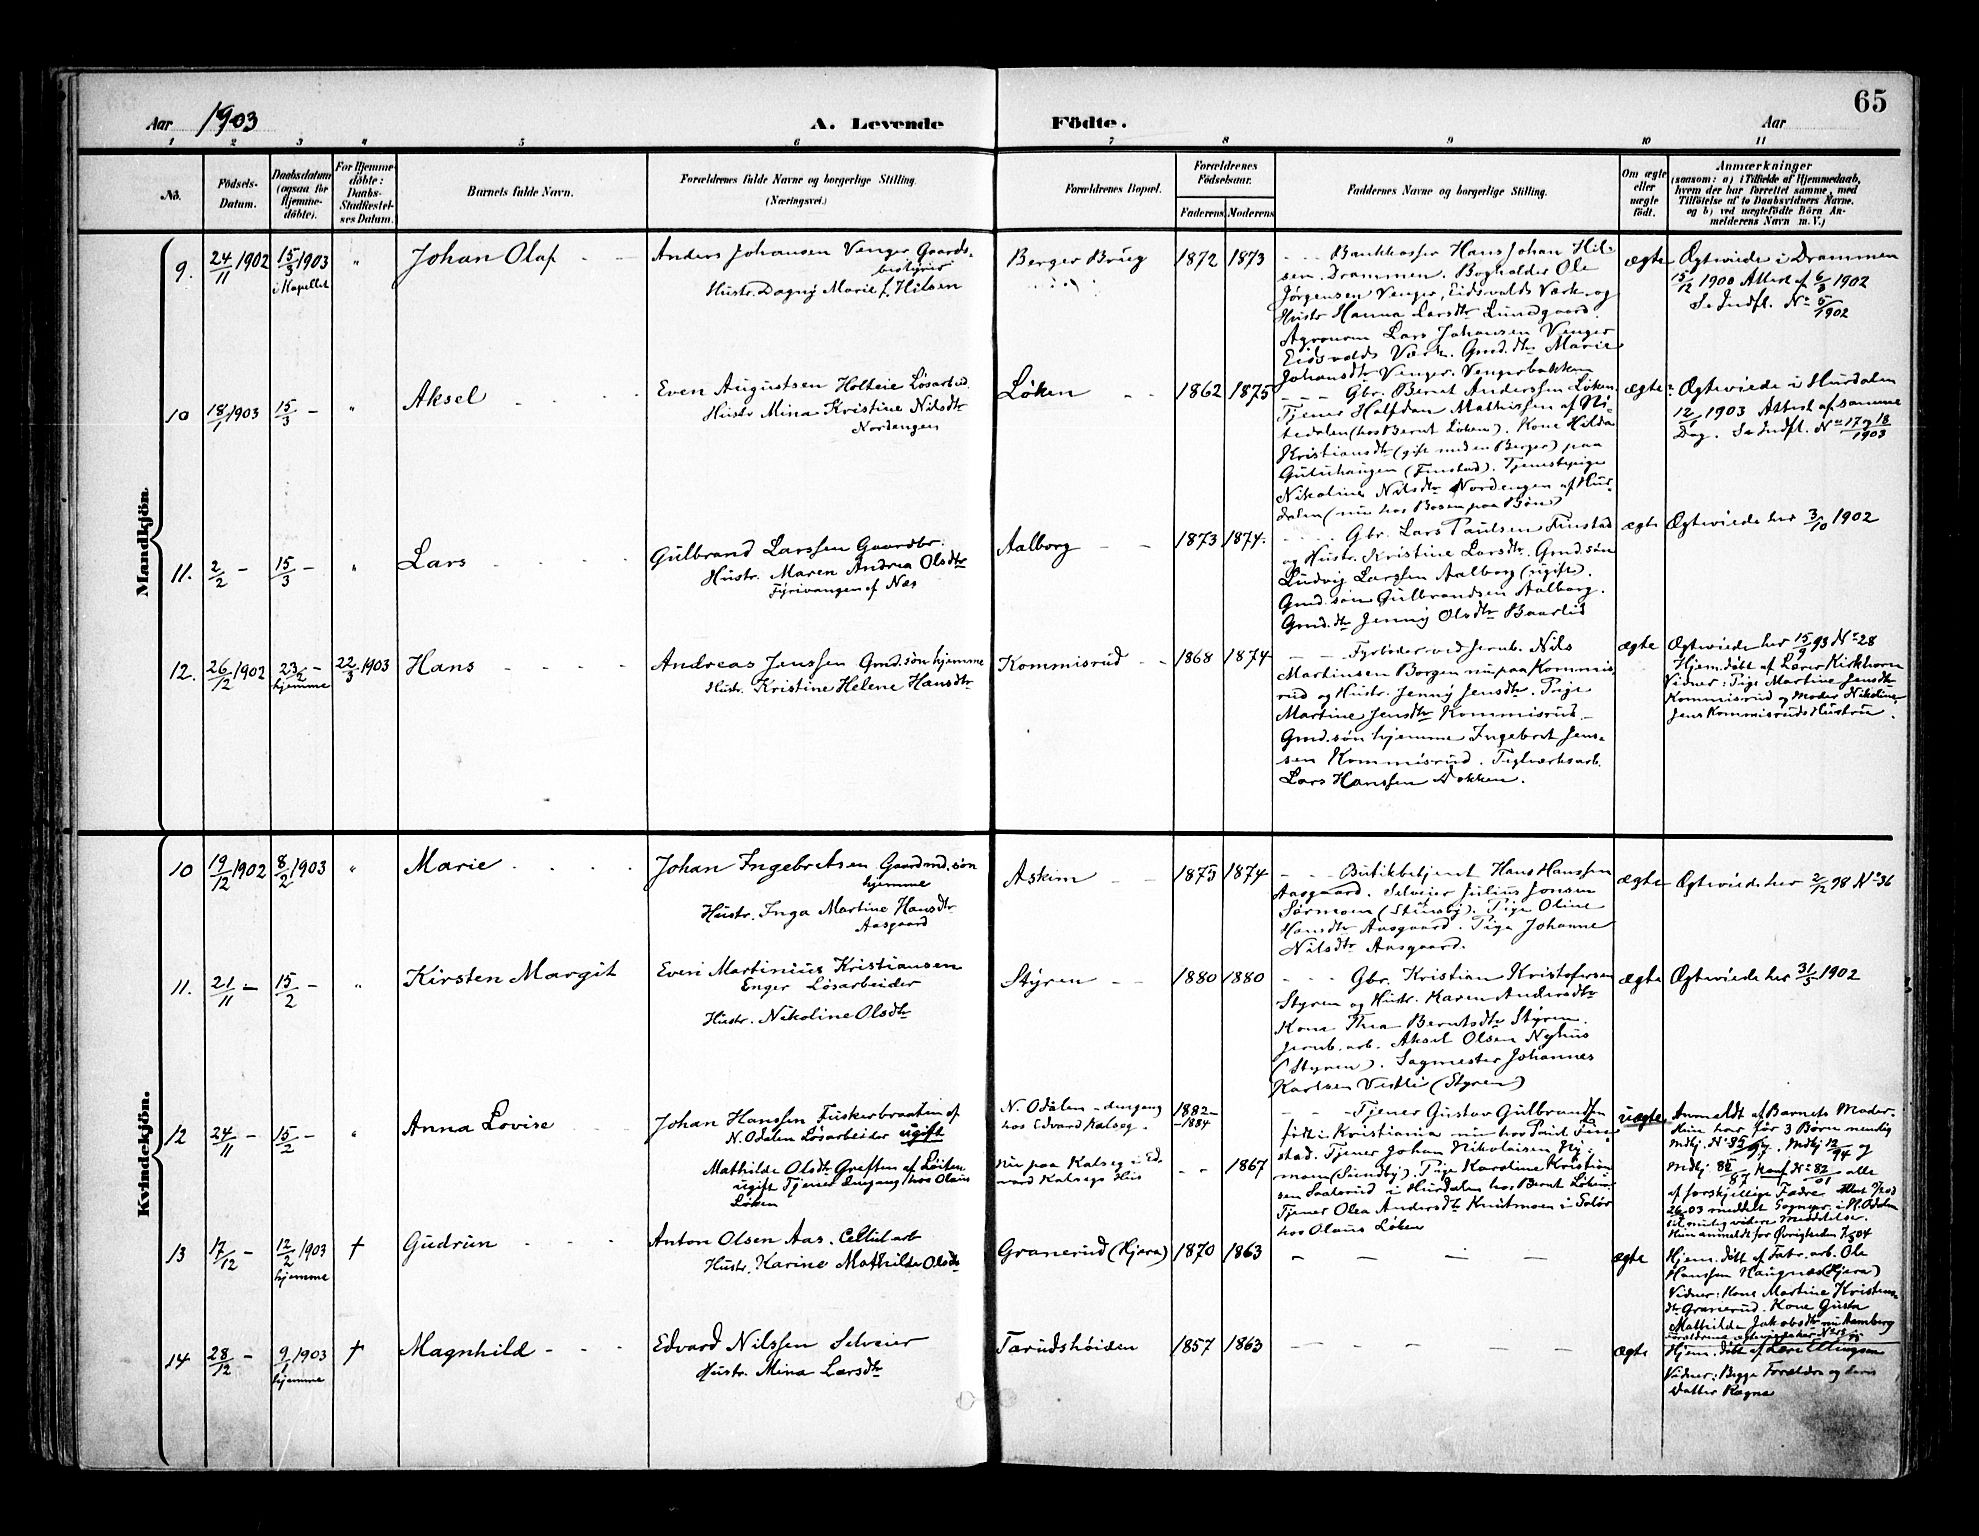 65
Aar 1903
A. Levende Födte.
Aar
1 2 3 4 5 6 7 8 9 10 11
No.
Födsels-
Datum.
Daabsdatum
(ogsaa for
Hjemme-
döbte).
For Hjemme-
döbte:
Daabs-
Stadfæstel-
ses Datum.
Barnets fulde Navn.
Forældrenes fulde Navne og borgerlige Stilling.
(Næringsvei.)
Forældrenes Bopæl.
Forældrenes
Födselsaar.
Faderens.
Moderens
Faddernes Navne og borgerlige Stilling.
Om ægte
eller
uægte
födt.
Anmærkninger
(saasom: a) i Tilfælde af Hjemmedaab,
hvem der har forrettet samme, med
Tilföielse af to Daabsvidners Navne.
og b) ved uægtefödte Börn An-
melderens Navn m. V.)
Mandkjön.
9. 24/11 1902 15/3 1903 "
i Kapellet
Johan Olaf
Anders Johansen Venger Gaards-
bestyrer
Hustr. Dagny Marie f. Hilsen
Berger Brug
1872 1873
Bankkasser Hans Johan Hil-
sen Drammen. Bogholder Ole
Jørgensen Venger, Eidsvolds Værk og
Hustr Hanna Larsdtr Lundgaard.
Agronom Lars Johansen Venger
Eidsvolds Værk. Gmd.dtr Marie
Johansdtr Venger. Vengerbakken
ægte
Ægteviede i Drammen
15/12 1900 Attest af 6/3 1902
Se Indfl. No 5/1902
10 18/1 1903 15/3 - "
Aksel
Even Augustsen Holteie Løsarbeid.
Hustr Mina Kristine Nilsdtr
Nordengen
Løken
1862 1875
Gbr. Bernt Anderssen Løken
Tjener Halfdan Mathissen af Ni-
tedalen (hos Bernt Løken). Kone Hilda
Kristiansdtr (gift med en Berger) paa
(Finstad). Tjenestepige
Nikoline Nilsdtr Nordengen af Hur-
dalen (nu hos Bosen paa Bøn)
ægte
Ægteviede i Hurdalen
12/1 1903 Attest af samme
Dag. Se Indfl. No 17 og 18/1903
11. 2/2 - 15/3 - "
Lars
Gulbrand Larssen Gaardbr.
Hustr. Maren Andrea Olsdtr
Fyrivangen af Næs
Aalborg
1873 1874.
Gbr. Lars Paulsen Finstad
og Hustr. Kristine Larsdtr. Gmd.søn
Ludvig Larssen Aalborg (ugift).
Gmd.søn Gulbrandsen Aalborg.
Gmd.dtr Jenny Olsdtr Baarlid
ægte
Ægteviede her 3/10 1902
12. 26/12 1902 23/2 - 22/3 1903
hjemme
Hans
Andreas Jenssen Gmd.søn hjemme
Hustr. Kristine Helene Hansdtr
Kommisrud
1868 1874
Fyrbøder ved Jernb. Nils
Martinsen Borgen nu paa Kommis-
rud og Hustr. Jenny Jensdtr. Pige
Martine Jensdtr Kommisrud.
Gmd.søn hjemme Ingebret Jens-
sen Kommisrud. Teglværksarb.
Lars Hanssen Dokken.
ægte
Ægteviede her 15/9 93 No 28
Hjem.døbt af Lærer Kirkhorn
Vidner: Pige Martine Jensdtr
Kommisrud og Moder Nikoline
Jens Kommisruds Hustru.
Kvindekjön.
10 19/12 1902 8/2 1903 "
Marie
Johan Ingebretsen Gaardmd.søn
hjemme
Hustr. Inga Martine Hansdtr
Aasgaard
Askim
1875 1874
Butikbetjent Hans Hanssen
Aasgaard. Selveier Julius Jonsen
Sørmoen (Stensby). Pige Oline
Hansdtr Aasgaard. Pige Johanne
Nilsdtr Aasgaard.
ægte
Ægteviede her 2/12 98 No 36
11. 21/11 - 15/2 - "
Kirsten Margit
Even Martinius Kristiansen
Enger Løsarbeider
Hustr. Nikoline Olsdtr
Styren
1880 1880
Gbr. Kristian Kristofersen
Styren og Hustr. Karen Andersdtr
Kone Thea Berntsdtr Styren.
Jernb. arb. Aksel Olsen Nyhus
(Styren). Sagmester Johannes
Karlsen Vestli (Styren)
ægte
Ægteviede her 31/5 1902
12 24/11 - 15/2 - "
Anna Lovise
Johan Hanssen Fuskerbraaten af
N. Odalen Løsarbeider ugift
Mathilde Olsdtr Græften af Løiten
ugift Tjener hos Olaus
Løken
N. Odalen
hos Edvard Kalseg.
nu paa Kalseg i Ed-
vard Kalsegs Hus
1882-
-1884
1867
Tjener Gustav Gulbrandsen
født i Kristiania nu hos Fin-
stad. Tjener Johan Nikolaisen Ny-
moen (Sundby). Pige Karoline Kristian
sen Saaterud i Hurdalen hos Bernt Løken
Tjener Olea Andersdtr Knutmoen i Solør
hos Olaus Løken
uægte
Anmeldt af Barnets Moder.
Hun har før 3 Børn nemlig
Mdkj. No 85/97. Mdkj 12/94 og
Mdkj 88/87 No 82/01 alle
af forskjellige Fædre
26-03 meddelt Sognepr. i N. Odalen
Hun anmeldt for Øvrigheden
13 17/12 - 12/2 1903 †
hjemme
Gudrun
Anton Olsen Aas. Cellul.arb
Hustr. Karine Mathilde Olsdtr
Granerud (Hjera)
1870 1863
ægte
Hjem.døbt af Fabr.arb. Ole
Hanssen Haugnæs (Hjera)
Vidner: Kone Martine Kristens-
dtr Granerud. Kone Gusta
Mathilde Jakobsdtr
14 28/12 - 9/1 1903 †
hjemme
Magnhild
Edvard Nilssen Selveier
Hustr. Mina Larsdtr
Tærudshøiden
1857 1863
ægte
Hjem.døbt af Lærer Ellingsen
Vidner: Begge Forældre og deres
Datter Ragna